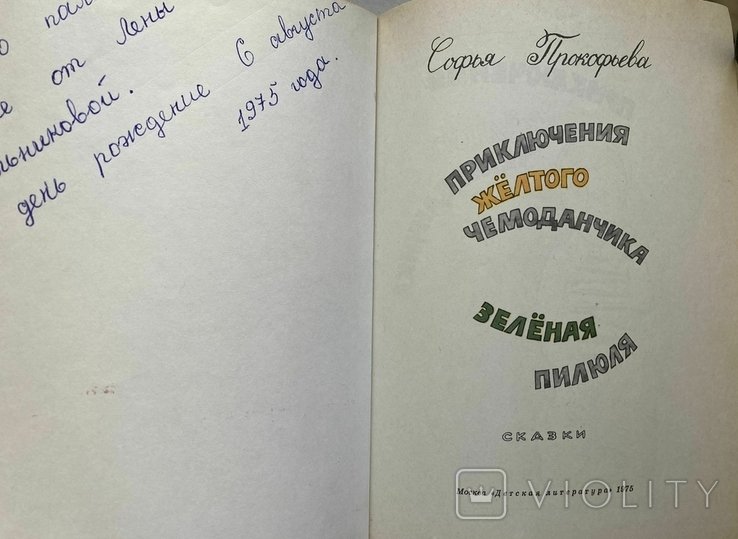 от Лены
день рождение 6 августа
1975 года.
Софья Прокофьева
ПРИКЛЮЧЕНИЯ
ЖЁЛТОГО
ЧЕМОДАНЧИКА
ЗЕЛЁНАЯ
ПИЛЮЛЯ
СКАЗКИ
Москва «Детская литература» 1975
VIOLITY